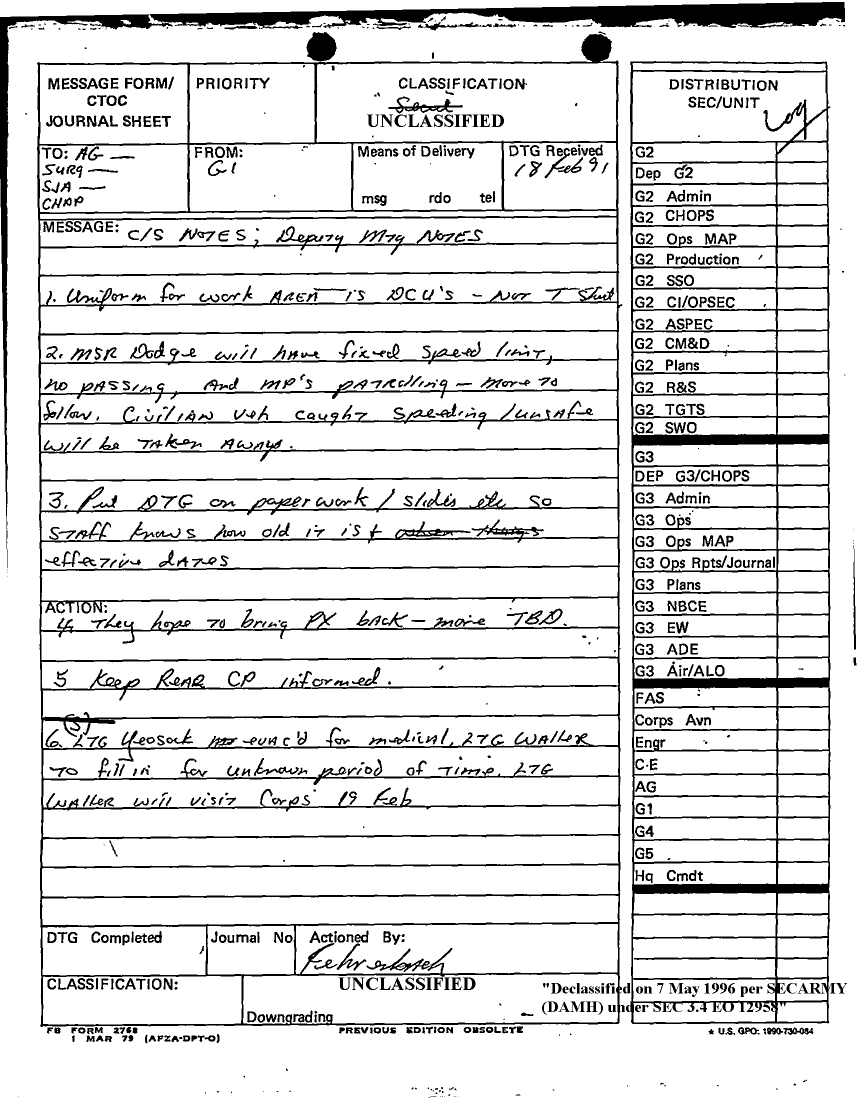 MESSAGE FORM/
CTOC
JOURNAL SHEET
PRIORITY
CLASSIFICATION
Secret
UNCLASSIFIED
TO: AG —
SURG —
SJA —
CHAP
FROM:
G1
Means of Delivery
msg rdo tel
DTG Received
18 Feb 91
MESSAGE: C/S NOTES; Deputy Mtg NOTES
1. Uniform for work AREA IS DCU's - Not T Shirt
2. MSR Dodge will have fixed speed limit,
no PASSING, And MP's PATROLling - more to
follow. Civilian veh caught speeding/unsafe
will be TAKEN AWAYS.
3. Put DTG on paperwork / slides etc so
STAFF knows how old it is + when things
effective dates
ACTION:
4. They hope to bring PX back - more TBD.
5 Keep REAR CP informed.
(S)
6. LTG Yeosock evac'd for medical, LTG WALLER
to fill in for unknown period of time. LTG
WALLER will visit Corps 19 Feb
DTG Completed
Journal No
Actioned By:
Fehrenbach
CLASSIFICATION:
UNCLASSIFIED
Downgrading
FB FORM 2768
1 MAR 79 (AFZA-DPT-O)
PREVIOUS EDITION OBSOLETE
DISTRIBUTION
SEC/UNIT
Log
G2
Dep G2
G2 Admin
G2 CHOPS
G2 Ops MAP
G2 Production
G2 SSO
G2 CI/OPSEC
G2 ASPEC
G2 CM&D
G2 Plans
G2 R&S
G2 TGTS
G2 SWO
G3
DEP G3/CHOPS
G3 Admin
G3 Ops
G3 Ops MAP
G3 Ops Rpts/Journal
G3 Plans
G3 NBCE
G3 EW
G3 ADE
G3 Air/ALO
FAS
Corps Avn
Engr
C-E
AG
G1
G4
G5
Hq Cmdt
"Declassified on 7 May 1996 per SECARMY
(DAMH) under SEC 3.4 EO 12958"
★ U.S. GPO: 1990-730-084